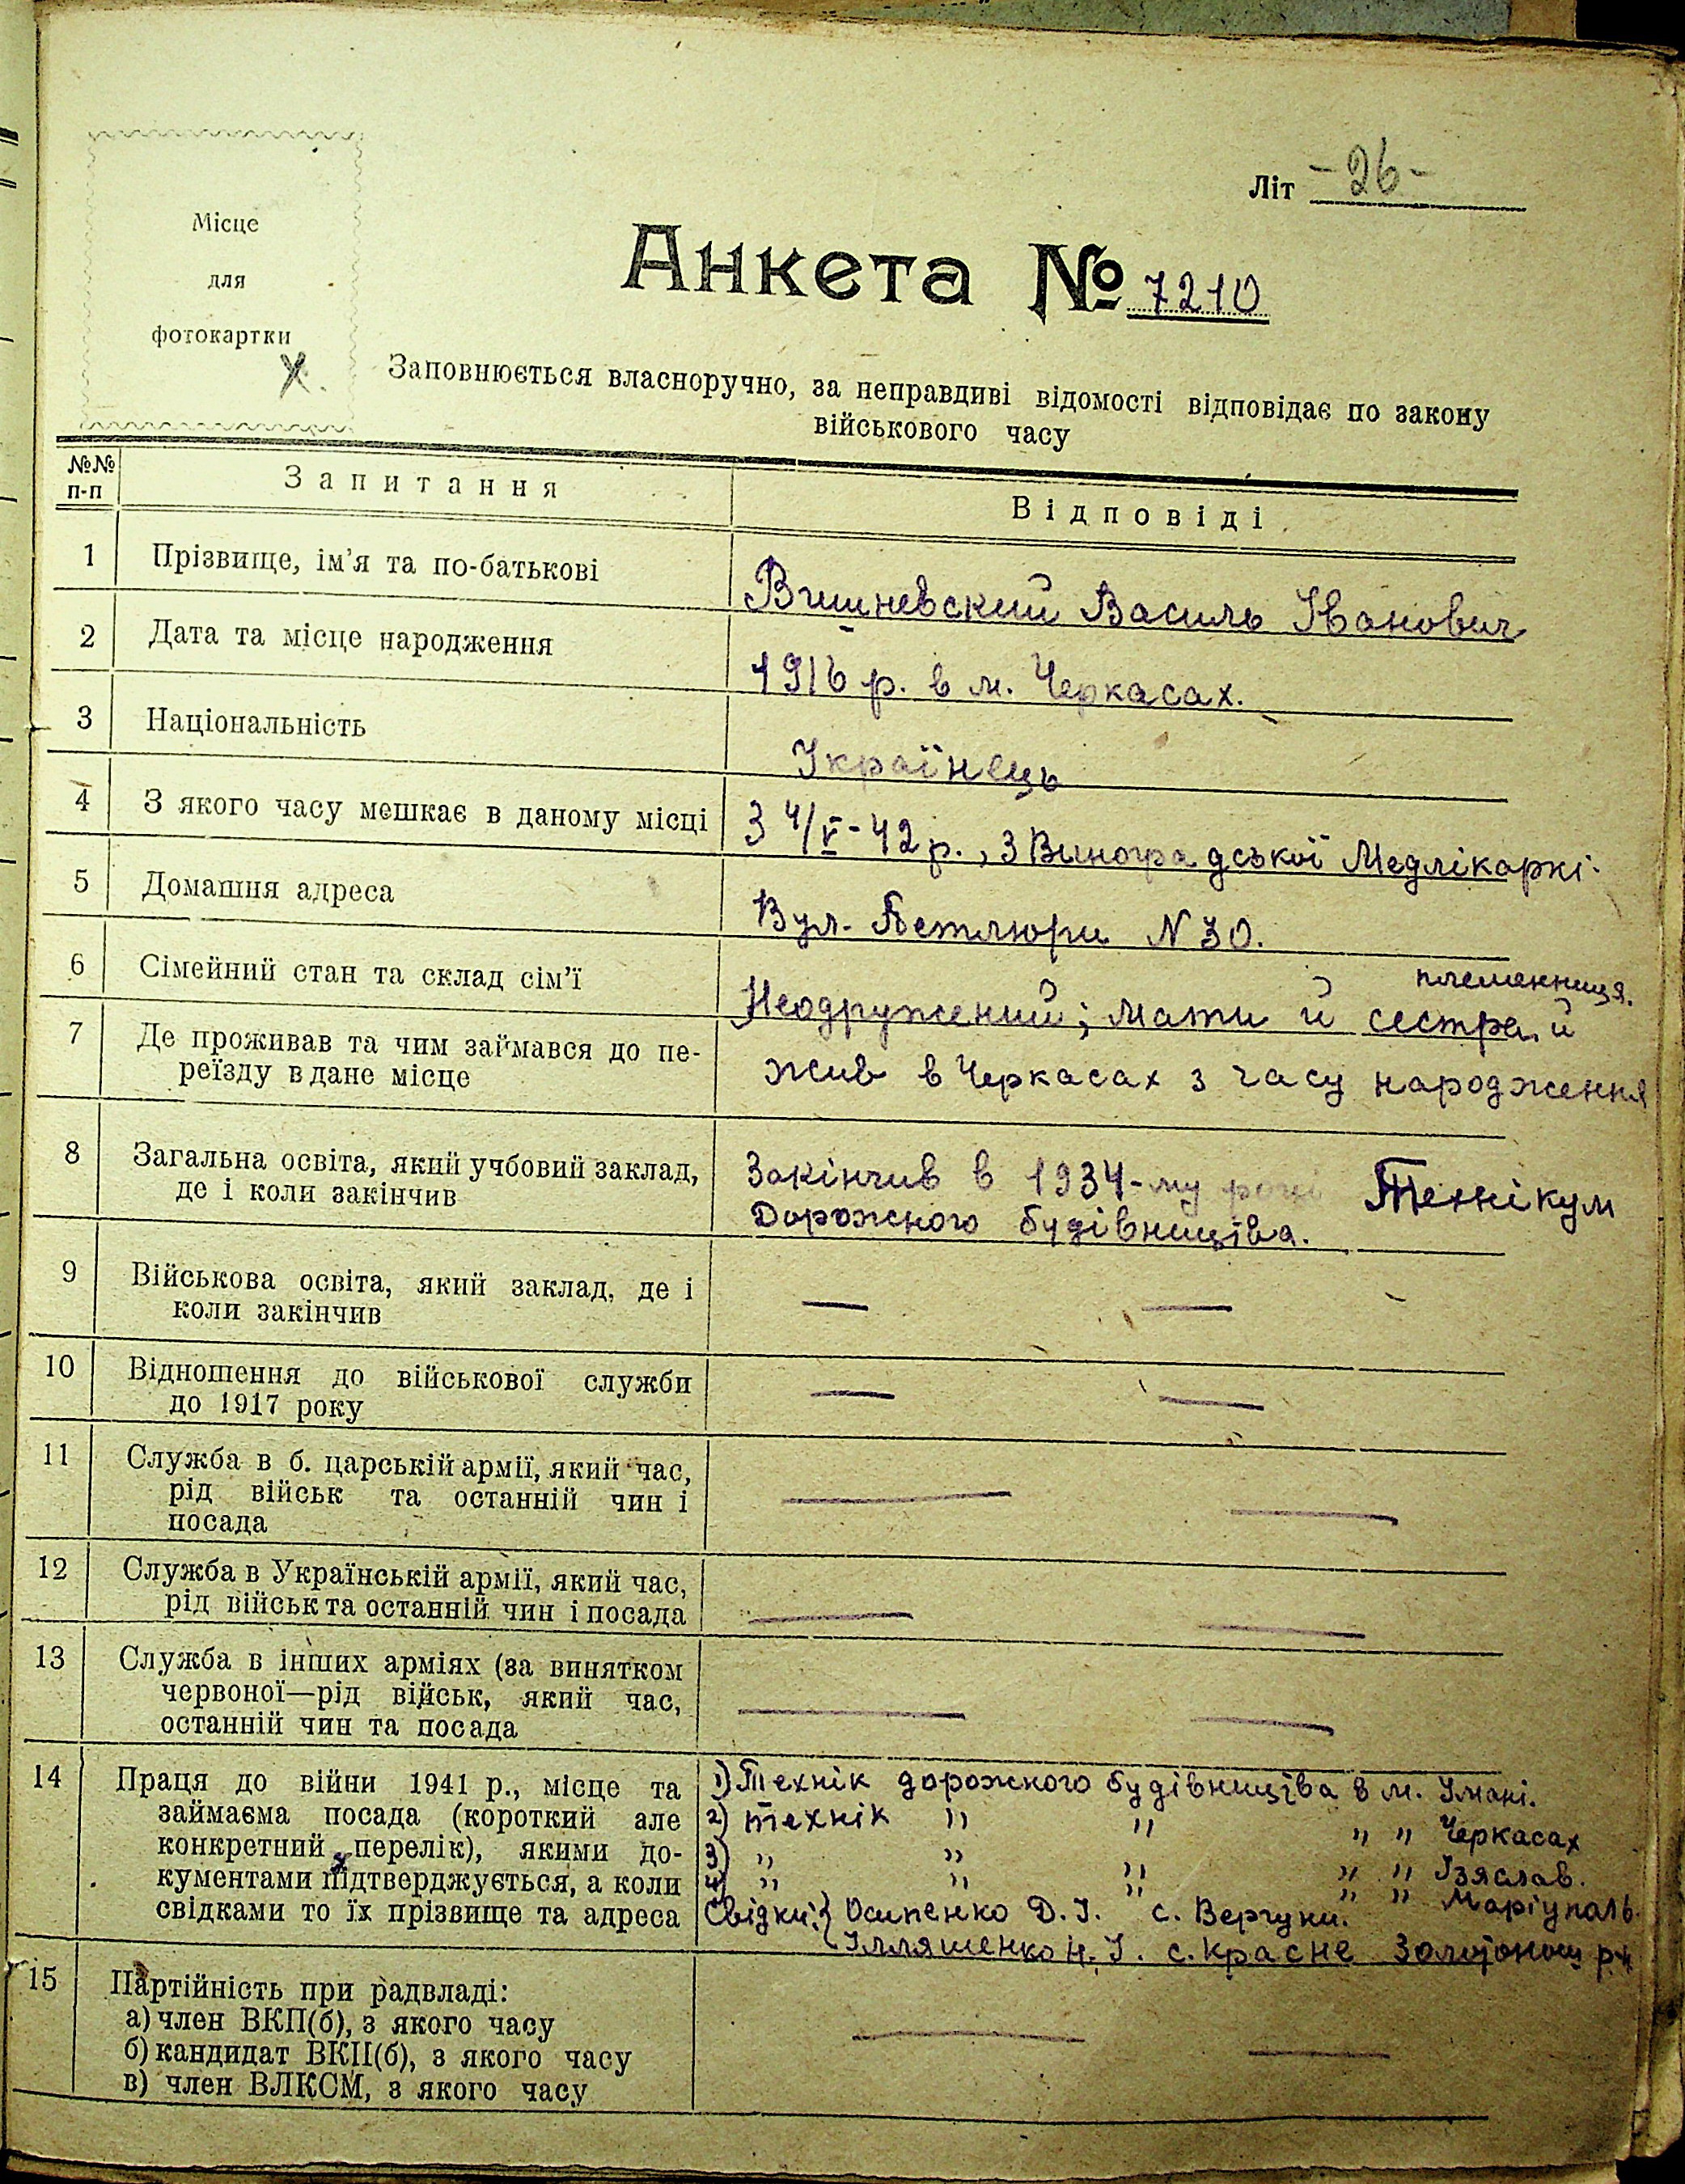 Літ -26-
Місце
для
фотокартки
Анкета № 7210
Заповнюється власноручно, за неправдиві відомості відповідає по закону
військового часу
№№ п-п Запитання Відповіді
1 Прізвище, ім'я та по-батькові Вишневский Василь Іванович
2 Дата та місце народження 1916 р. в м. Черкасах.
3 Національність Українець
4 З якого часу мешкає в даному місці З 4/V-42 р., з Виноградської Медлікаркі.
5 Домашня адреса Вул. Петлюри N 30.
6 Сімейний стан та склад сім'ї Неодружений; мати й сестра й племенниця.
7 Де проживав та чим займався до пе-
реїзду в дане місце жив в Черкасах з часу народження
8 Загальна освіта, який учбовий заклад, Закінчив в 1934-му році Технікум
де і коли закінчив Дорожного будівництва.
9 Військова освіта, який заклад, де і
коли закінчив — —
10 Відношення до військової служби
до 1917 року — —
11 Служба в б. царській армії, який час,
рід військ та останній чин і — —
посада
12 Служба в Українській армії, який час,
рід військ та останній чин і посада — —
13 Служба в інших арміях (за винятком
червоної—рід військ, який час,
останній чин та посада — —
14 Праця до війни 1941 р., місце та 1) Технік дорожного будівництва в м. Умані.
займаєма посада (короткий але 2) технік " " " " Черкасах
конкретний перелік), якими до- 3) " " " " " Ізяслав.
кументами підтверджується, а коли 4) " " " " " Маріуполь.
свідками то їх прізвище та адреса Свідки: Осипенко Д. І. с. Вергуни.
Ілляшенко Н. І. с. Красне Золотонош р-н
15 Партійність при радвладі:
а) член ВКП(б), з якого часу
б) кандидат ВКП(б), з якого часу — —
в) член ВЛКСМ, з якого часу